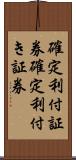 確定利付証
券確定利付
き証券